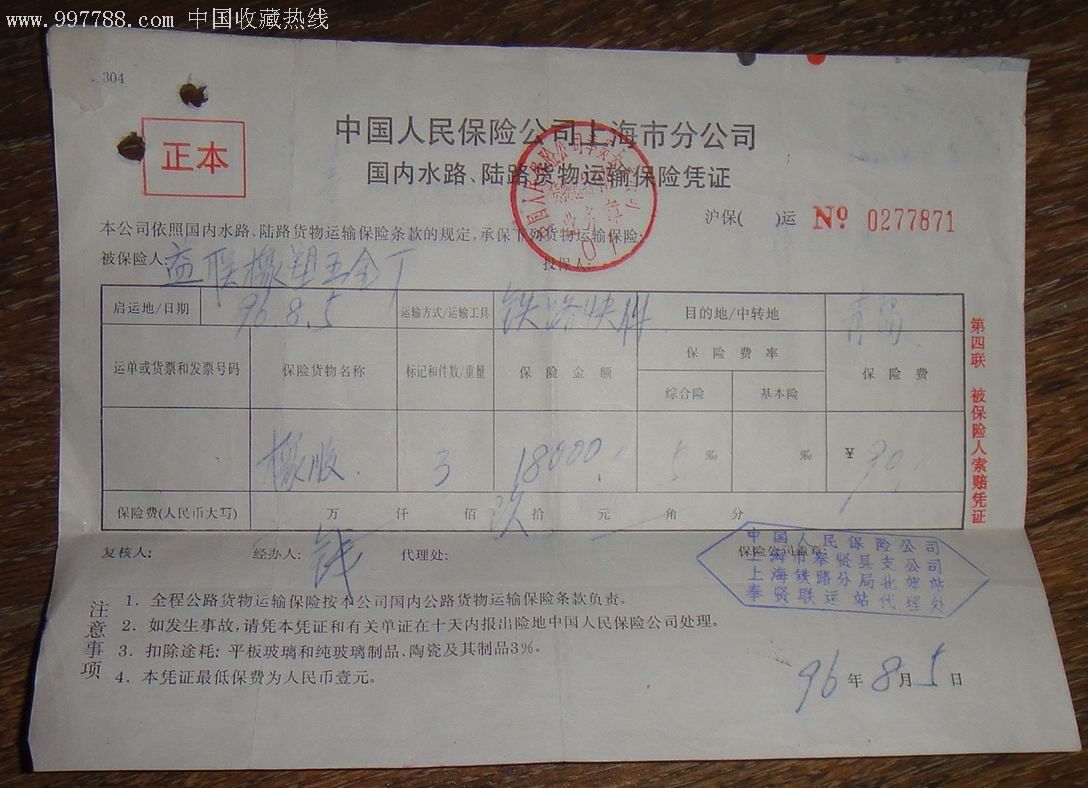 www.997788.com 中国收藏热线
304
正本
中国人民保险公司上海市分公司
国内水路、陆路货物运输保险凭证
沪保( )运 Nº 0277871
本公司依照国内水路、陆路货物运输保险条款的规定,承保下列货物运输保险:
被保险人: 益联橡塑五金厂 投保人:
启运地/日期 96.8.5 运输方式/运输工具 铁路快件 目的地/中转地 青岛
运单或货票和发票号码 保险货物名称 标记和件数/重量 保险金额 保险费率 保险费
综合险 基本险
橡胶. 3 18000. 5 ‰ ‰ ¥ 90.
保险费(人民币大写) 万 仟 佰 玖 拾 元 角 分
复核人: 经办人: 钱 代理处: 保险公司盖章:
中国人民保险公司
上海市奉贤县支公司
上海铁路分局北郊站
奉贤联运站代理处
注意事项
1. 全程公路货物运输保险按本公司国内公路货物运输保险条款负责。
2. 如发生事故,请凭本凭证和有关单证在十天内报出险地中国人民保险公司处理。
3. 扣除途耗:平板玻璃和纯玻璃制品、陶瓷及其制品3%。
4. 本凭证最低保费为人民币壹元。
96 年 8 月 5 日
第四联 被保险人索赔凭证